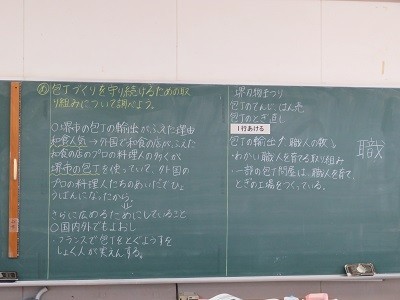 め 包丁づくりを守り続けるための取
り組みについて調べよう。
○堺市の包丁の輸出がふえた理由
和食人気→外国で和食の店がふえた
和食の店のプロの料理人の多くが
堺市の包丁を使っていて、外国の
プロの料理人たちのあいだでひょ
うばんになったから。
さらに広めるためにしていること
○国内外でもよおし
・フランスで包丁をとぐようすを
しょく人が実えんする。
堺刃物まつり
包丁のてんじ・はん売
包丁のとぎ直し
1行あける
包丁の輸出↑ 職人の数↓
・わかい職人を育てる取り組み
・一部の包丁問屋は、職人を育て、
とぎの工場をつくっている。
職